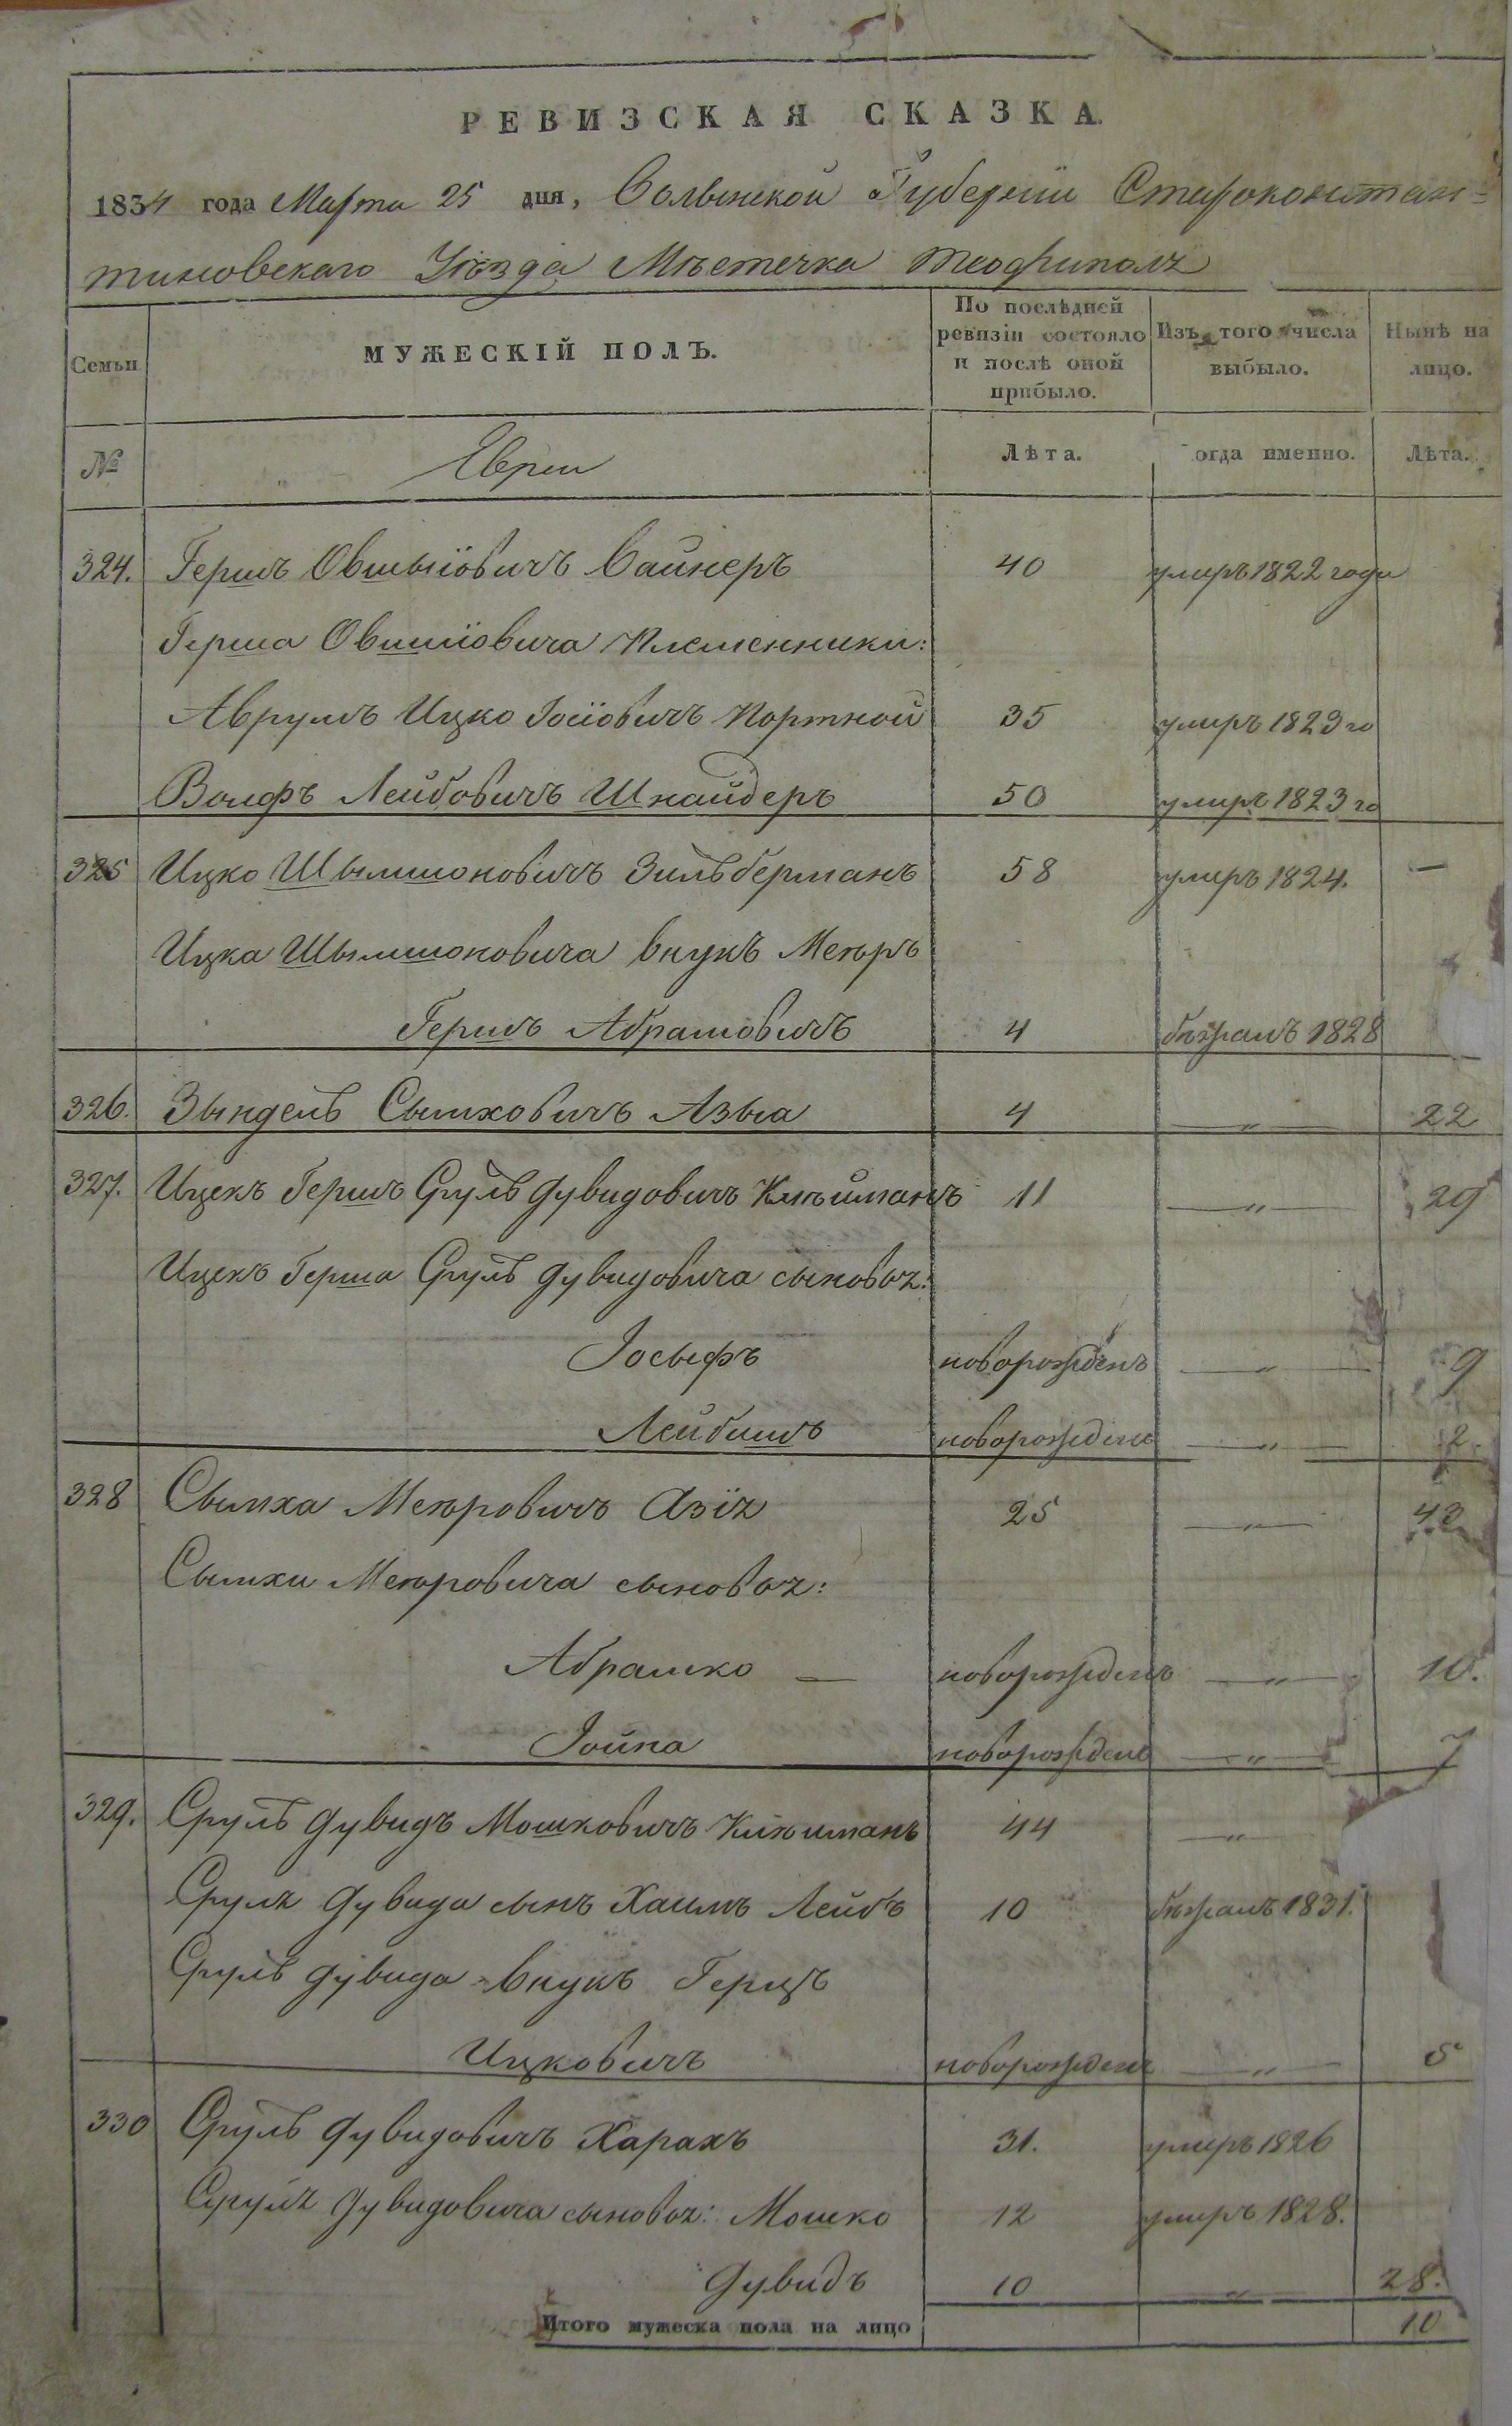 РЕВИЗСКАЯ СКАЗКА.
1834 года Марта 25 дня, Волынской Губернїи Староконстан-
тиновскаго Уѣзда Мѣстечка Теофиполя
Семьи
МУЖЕСКІЙ ПОЛЪ.
По послѣдней ревизіи состояло и послѣ оной прибыло.
Изъ того числа выбыло.
Нынѣ на лицо.
№ Евреи Лѣта. огда именно. Лѣта.
324. Гершъ Овшыїовичъ Вайнеръ 40 умиръ 1822 года
Герша Овшиїовича племенники:
Аврумъ Ицко Іосїовичъ Портной 35 умиръ 1823 го
Волфъ Лейбовичъ Шнайдеръ 50 умиръ 1823 го
325 Ицко Шымшоновичъ Зильберманъ 58 умиръ 1824. —
Ицка Шымшоновича внукъ Меюръ
Гершъ Абрамовичъ 4 бѣжалъ 1828
326. Зындель Сымховичъ Азыа 4 — " — 22
327. Ицекъ Гершъ Сруль Дувидовичъ 11 — " — 29
Ицекъ Герша Сруль Дувидовича сыновья:
Іосыфъ новорожденъ — " — 9
Лейбишъ новорожденъ — " — 2.
328 Сымха Меюровичъ Азїя 25 — " — 43
Сымхи Меюровича сыновья:
Абрамко — новорожденъ — " — 10.
Іойна новорожденъ — " — 7
329. Сруль Дувидъ Мошковичъ 44 — " —
Сруля Дувида сынъ Хаимъ Лейбъ 10 бѣжалъ 1831.
Сруль Дувида внукъ Герцъ
Ицковичъ новорожденъ — " — 5
330 Сруль Дувидовичъ Харахъ 31. умиръ 1826
Сруля Дувидовича сыновья: Мошко 12 умиръ 1828.
Дувидъ 10 — " — 28.
Итого мужеска пола на лицо 10